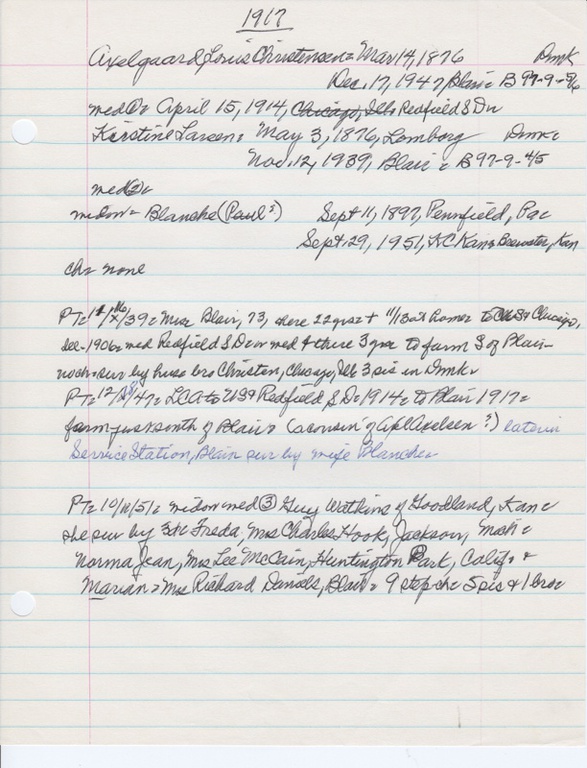 1917
Axelgaard, Louis Christensen = Mar 14, 1876 Dmk
Dec. 17, 1947, Blair = B 97-9-5/6
med ① = April 15, 1914, Chicago, Ills Redfield S D =
Kirstine Larsen = May 3, 1876, Lemborg Dmk =
Nov. 12, 1939, Blair = B 97-9-4/5
med ② =
widow = Blanche (Paul?) Sept 11, 1897, Pennfield, Pa =
Sept. 29, 1951, K C Kan = Brewster, Kan
chr none
PT = 11/16/39 = Mrs Blair, 73, here 22 yrs = + 11/13 at home = to US 89 Chicago,
Ills - 1906 = med Redfield S D = med + there 3 yrs to farm S of Blair -
noch = sur by hus = bro Christen, Chicago, Ills 3 sis in Dmk =
PT = 12/47 = L C A to US 89 Redfield S D = 1914 = to Blair 1917 =
farm just south of Blair = (a cousin of Axel Axelsen?) later in
Service Station, Blair sur by wife Blanche =
PT = 10/10/51 = widow med ③ Guy Watkins of Goodland, Kan =
she sur by 3 chr Freda, Mrs Charles Hook, Jackson, Mich =
Norma Jean, Mrs Lee McCain, Huntington Park, Calif = +
Marian = Mrs Richard Daniels, Blair = 9 step chr 5 sis + 1 bro =